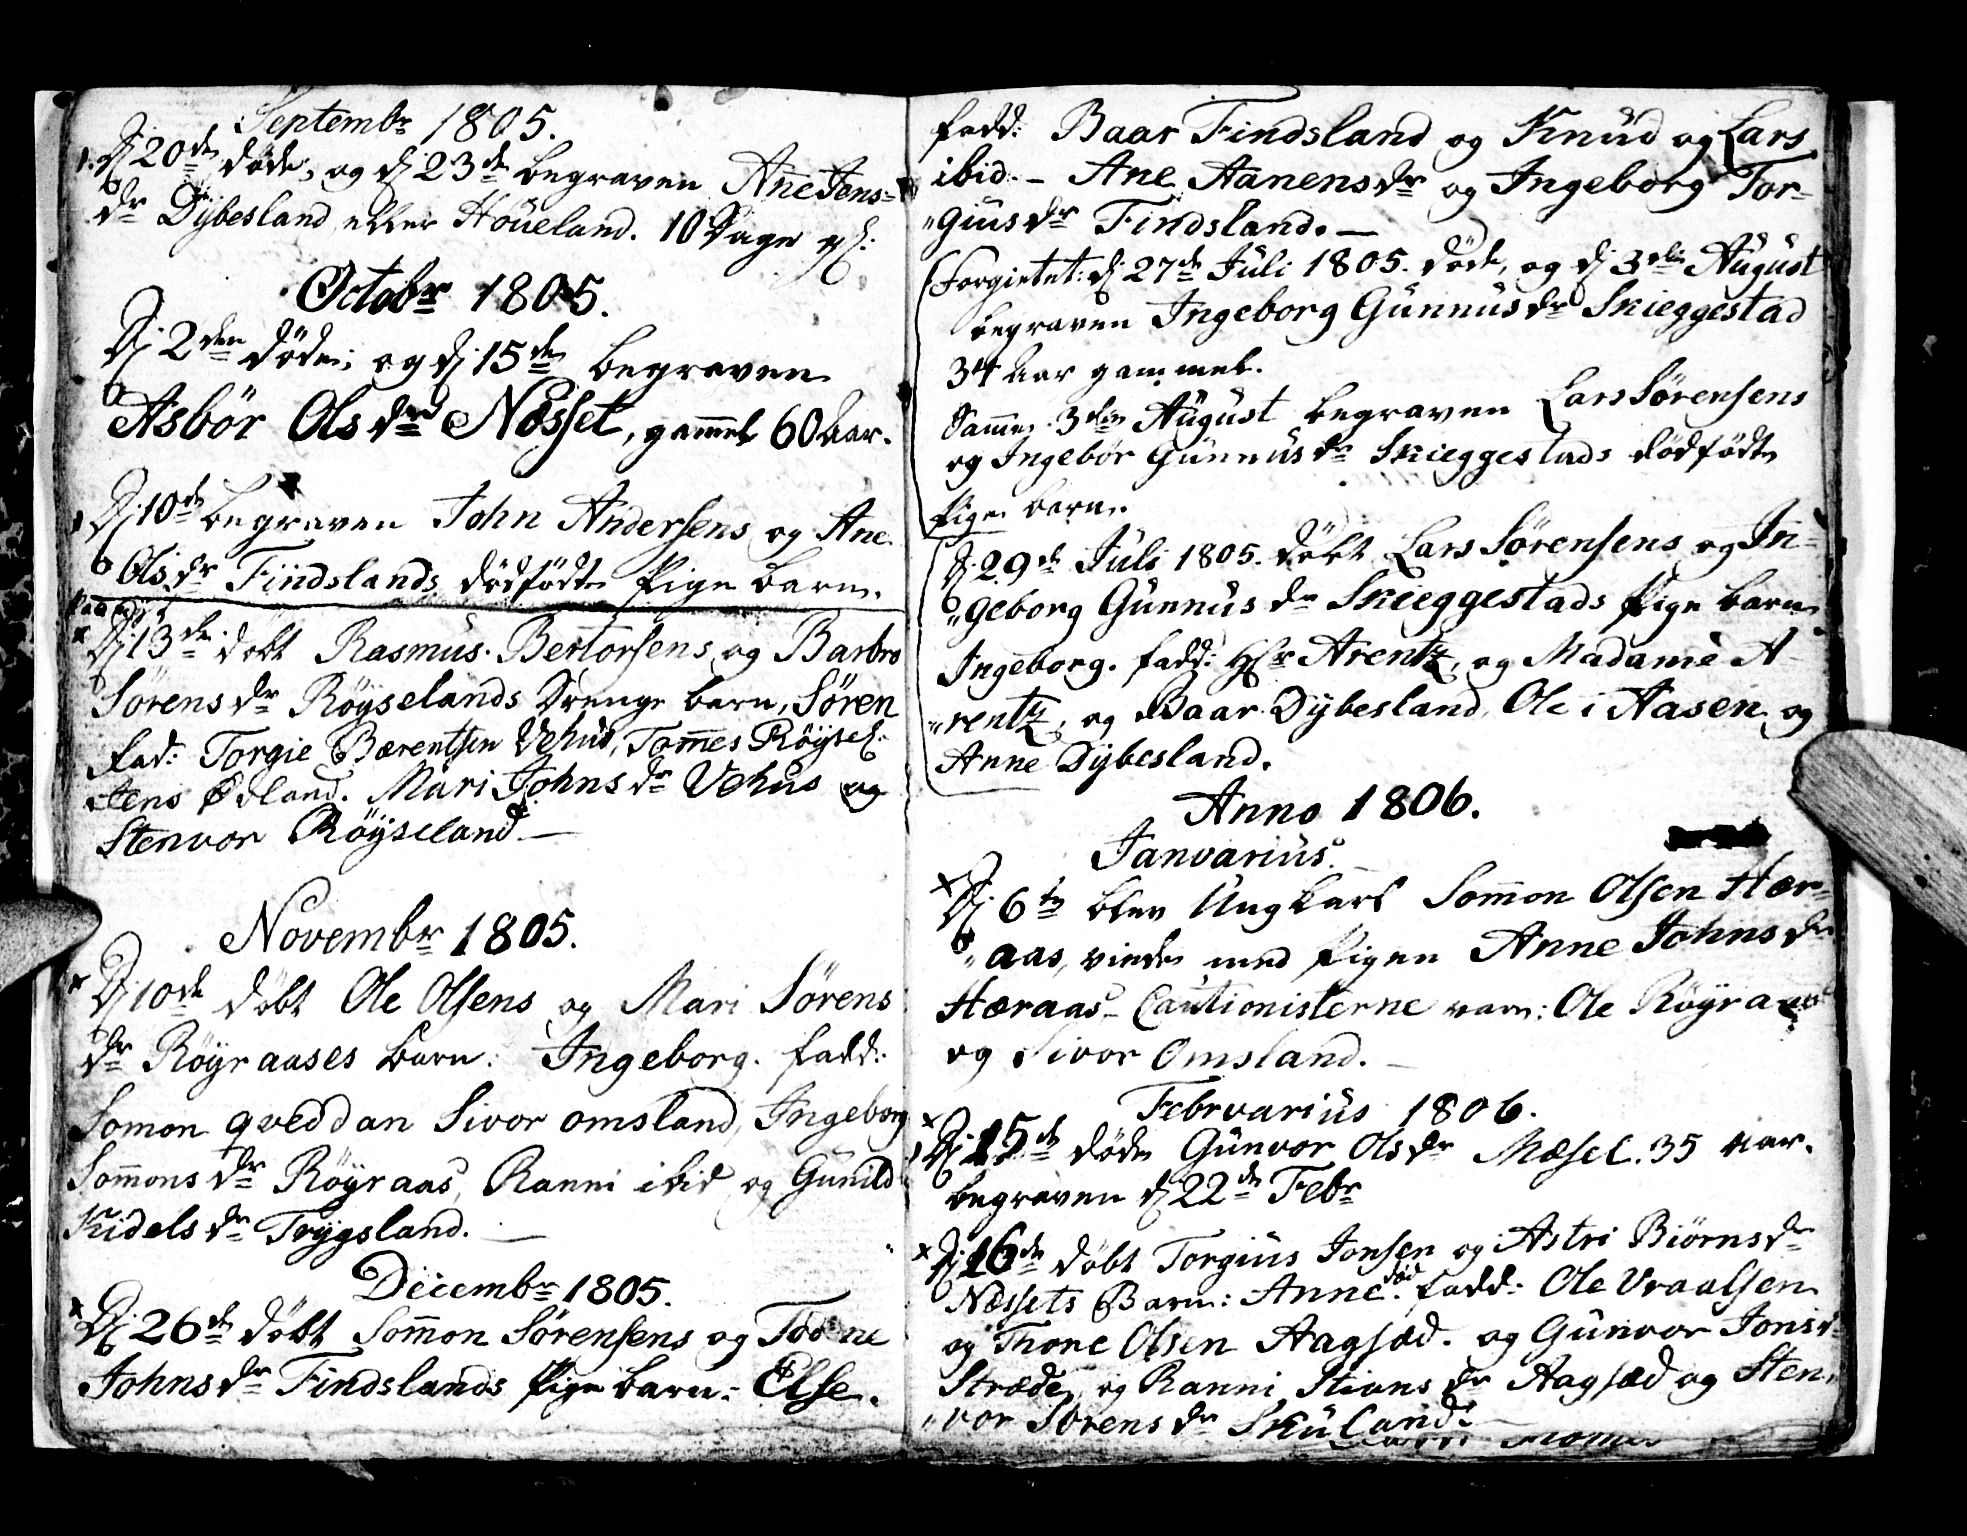 Septembr 1805.
Dj 20de døde, og dj 23de begraven Ane Jens=
dr Dybesland eller Houeland. 10 Dage gl:
Octobr 1805.
Dj 2den døde, og dj 15de begraven
Asbör Olsdr Næsset, gamel 60 Aar.
Dj 10de begraven John Andersens og Ane
Olsdr Findslands dödfödte Pige barn.
Dj 13de döbt Rasmus Bertorsens og Barbro
Sörensdr Röyselands Drenge barn, Sören
Fad: Torgie Bærentsen Vehus, Tomes Röysel:
Jens Ødland. Mari Johnsdr Vehus og
Stenvor Röyseland. —
Novembr 1805.
Dj 10de döbt Ole Olsens og Mari Sörens
dr Röyraases barn: Ingeborg. fadd:
Somon qveddan Sivor omsland, Ingeborg
Somonsdr Röyraas, Ranni ibid og Gunild
Kidelsdr Trygsland. —
Decembr 1805.
Dj 26de döbt Somon Sörensens og Torne
Johnsdr Findslands Pige barn: Else.
fadd: Baar Findsland og Knud og Lars
ibid. – Ane Aanensdr og Ingeborg Tor-
„giusdr Findsland. —
Forgietet: dj 27de Juli 1805. døde, og dj 3die August
begraven Ingeborg Gunnusdr Skieggestad
34 Aar gammel.
Samme 3die August begraven Lars Sørensens
og Ingebör Gunnusdr Skieggestads dödfödte
Pige barn.
Dj 29de Juli 1805. döbt Lars Sörensens og In-
„geborg Gunnusdr Skieggestads Pige barn
Ingeborg. fadd: Hr Arentz, og Madame A-
„rentz, og Baar Dybesland, Ole i Aasen og
Anne Dybesland.
Anno 1806.
Janvarius.
Dj 6te blev Ungkarl Somon Olsen Hær-
„aas, viede med Pigen Anne Johnsdr
Hæraas – Cautionisterne vare: Ole Röyraas
og Sivor Omsland. –
Febrvarius 1806.
Dj 15de døde Gunvor Olsdr Mæsel. 35 Aar.
begraven dj 22de Febr
Dj 16de döbt Torgius Jonsen og Astri Biörnsdr
Næssets Barn: Anne. död fadd: Ole Vraalsen
og Thore Olsen Aagsæd. og Gunvor Jonsd:
Stræde, og Ranni Stiansdr Aagsæd og Sten-
„vor Sörensdr Skuland: